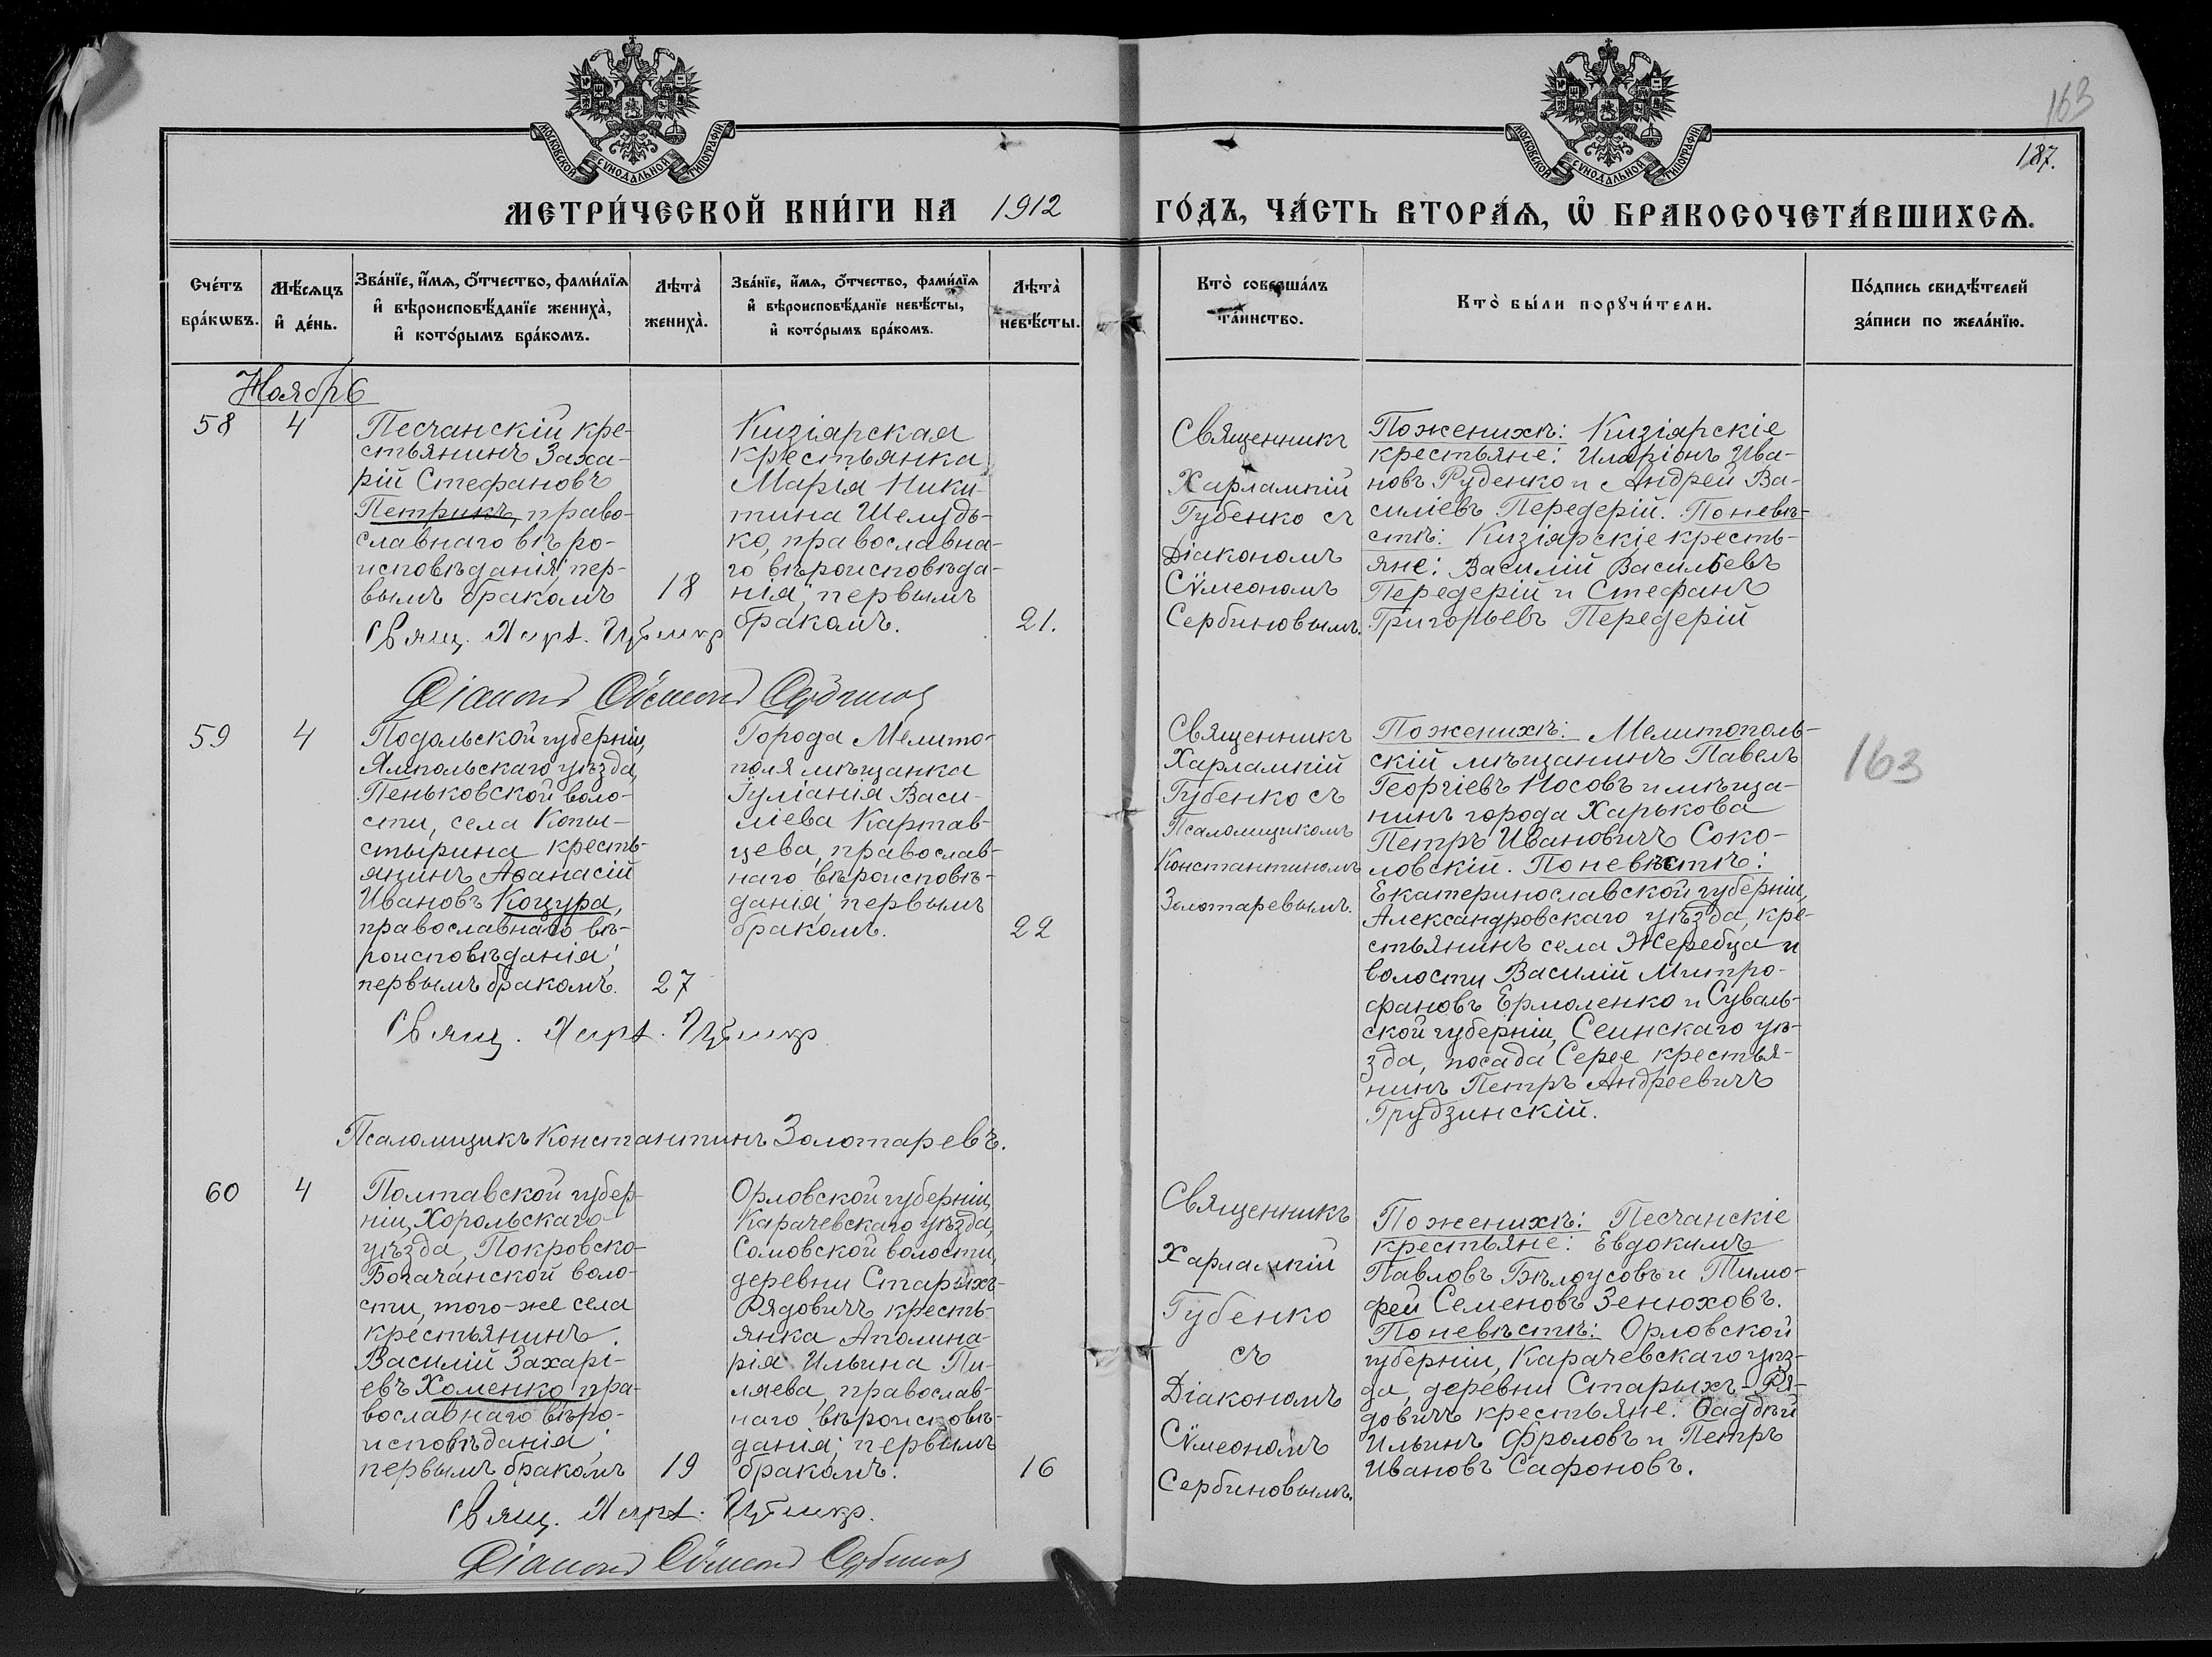 163
187.
МОСКОВСКОЙ СУНОДАЛЬНОЙ ТИПОГРАФІИ
МОСКОВСКОЙ СУНОДАЛЬНОЙ ТИПОГРАФІИ
МЕТРИ́ЧЕСКОЙ КНИ́ГИ НА 1912 ГО́ДЪ, ЧА́СТЬ ВТОРА́Ѧ, Ѡ҆ БРАКОСОЧЕТА́ВШИХСѦ.
Сче́тъ
бра́кѡвъ.
Мѣ́сяцъ
и҆ де́нь.
Зва́нїе, и҆́мѧ, ѻ҆́тчество, фами́лїѧ
и҆ вѣроисповѣ́данїе жениха̀,
и҆ кото́рымъ бра́комъ.
Лѣта̀
жениха̀.
Зва́нїе, и҆́мѧ, ѻ҆́тчество, фами́лїѧ
и҆ вѣроисповѣ́данїе невѣ́сты,
и҆ кото́рымъ бра́комъ.
Лѣта̀
невѣ́сты.
Кто̀ соверша́лъ
та́инство.
Кто̀ бы́ли порꙋчи́тели.
По́дпись свидѣ́телей
за́писи по жела́нїю.
Ноябрь
58
4
Песчанскій кре-
стьянинъ Заха-
рій Стефановъ
Петрикъ, право-
славнаго вѣро-
исповѣданія; пер-
вымъ бракомъ
18
Кизіярская
крестьянка
Марія Ники-
тина Шелудь-
ко, православна-
го вѣроисповѣда-
нія; первымъ
бракомъ.
21.
Священникъ
Харлампій
Губенко съ
Діакономъ
Сѵмеономъ
Сербиновымъ.
По женихѣ: Кизіярскіе
крестьяне: Иларіонъ Ива-
новъ Руденко и Андрей Ва-
силіевъ Передерій. По невѣ-
стѣ: Кизіярскіе кресть-
яне: Василій Васильевъ
Передерій и Стефанъ
Григорьевъ Передерій
Свящ. Харл. Губенко
Діаконъ Сѵмеонъ Сербиновъ
59
4
Подольской губерніи,
Ямпольскаго уѣзда,
Пеньковской воло-
сти, села Копы-
стырина кресть-
янинъ Аѳанасій
Ивановъ Коцура,
православнаго вѣ-
роисповѣданія;
первымъ бракомъ.
27
Города Мелито-
поля мѣщанка
Іуліанія Васи-
ліева Картав-
цева, православ-
наго вѣроисповѣ-
данія; первымъ
бракомъ.
22
Священникъ
Харлампій
Губенко съ
Псаломщикомъ
Константиномъ
Золотаревымъ.
По женихѣ: Мелитополь-
скій мѣщанинъ Павелъ
Георгіевъ Носовъ и мѣща-
нинъ города Харькова
Петръ Ивановичъ Соко-
ловскій. По невѣстѣ:
Екатеринославской губерніи,
Александровскаго уѣзда, кре-
стьянинъ села Жеребца и
волости Василій Митро-
фановъ Ермоленко и Суваль-
ской губерніи, Сеинскаго уѣ-
зда, посада Серее крестья-
нинъ Петръ Андреевичъ
Грудзинскій.
163
Свящ. Харл. Губенко
Псаломщикъ Константинъ Золотаревъ.
60
4
Полтавской губер-
ніи, Хорольскаго
уѣзда, Покровско-
Богачанской воло-
сти, того-же села
крестьянинъ
Василій Захарі-
евъ Хоменко, пра-
вославнаго вѣро-
исповѣданія;
первымъ бракомъ
19
Орловской губерніи,
Карачевскаго уѣзда,
Сомовской волости,
деревни Старыхъ-
Рядовичъ кресть-
янка Аполина-
рія Ильина Пи-
ляева, православ-
наго вѣроисповѣ-
данія; первымъ
бракомъ.
16
Священникъ
Харлампій
Губенко
съ
Діакономъ
Сѵмеономъ
Сербиновымъ.
По женихѣ: Песчанскіе
крестьяне: Евдокимъ
Павловъ Бѣлоусовъ и Тимо-
фей Семеновъ Зенюховъ.
По невѣстѣ: Орловской
губерніи, Карачевскаго уѣз-
да, деревни Старыхъ-Ря-
довичъ крестьяне: Ѳаддѣй
Ильинъ Фроловъ и Петръ
Ивановъ Сафоновъ.
Свящ. Харл. Губенко.
Діаконъ Сѵмеонъ Сербиновъ